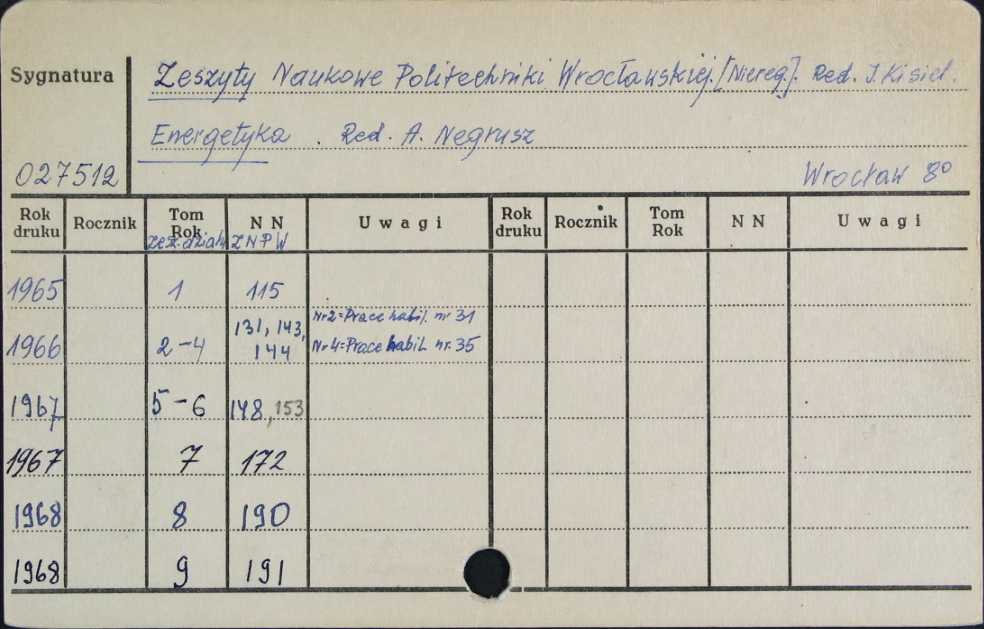 Sygnatura
Zeszyty Naukowe Politechniki Wrocławskiej. [Niereg.]. Red. I. Kisiel.
Energetyka . Red. A. Negrusz
027512
Wrocław 8°
Rok druku Rocznik Tom Rok N N Uwagi Rok druku Rocznik Tom Rok N N Uwagi
zesz. działu Z N P W
1965 1 115
1966 2-4 131, 143, 144 Nr 2=Prace habil. nr 31
Nr 4=Prace habil. nr. 35
1967 5-6 148, 153
1967 7 172
1968 8 190
1968 9 191